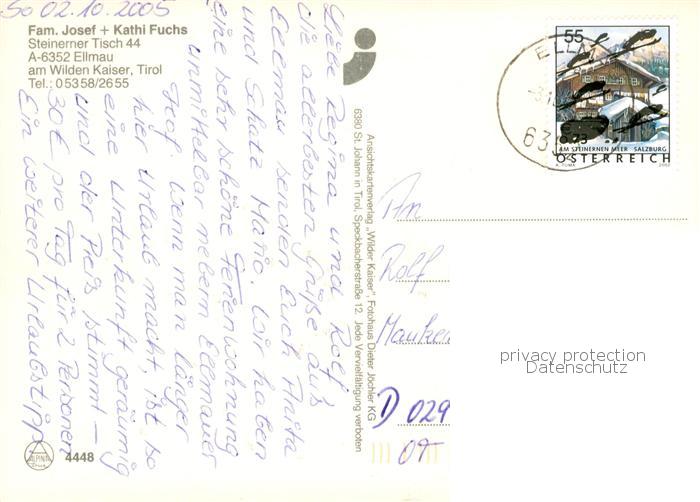 So 02.10.2005
Fam. Josef + Kathi Fuchs
Steinerner Tisch 44
A-6352 Ellmau
am Wilden Kaiser, Tirol
Tel.: 05358/2655
Liebe Regina und Rolf
die allerbesten Grüße aus
Ellmau senden Euch Anita
und Schatz Mario. Wir haben
eine sehr schöne Ferienwohnung
unmittelbar neben Ellmauer
Hof. Wenn man länger
hier Urlaub macht, ist so
eine Unterkunft geräumig
und der Preis stimmt –
30€ pro Tag für 2 Personen
Ein weiterer Urlaubstipp
ALPINA
4448
Ansichtskartenverlag „Wilder Kaiser", Fotohaus Dieter Jöchler KG
6380 St. Johann in Tirol, Speckbacherstraße 12. Jede Vervielfältigung verboten
ELLM
63
55
AM STEINERNEN MEER SALZBURG
ÖSTERREICH
2002
An
Rolf
D 029
OT
privacy protection
Datenschutz